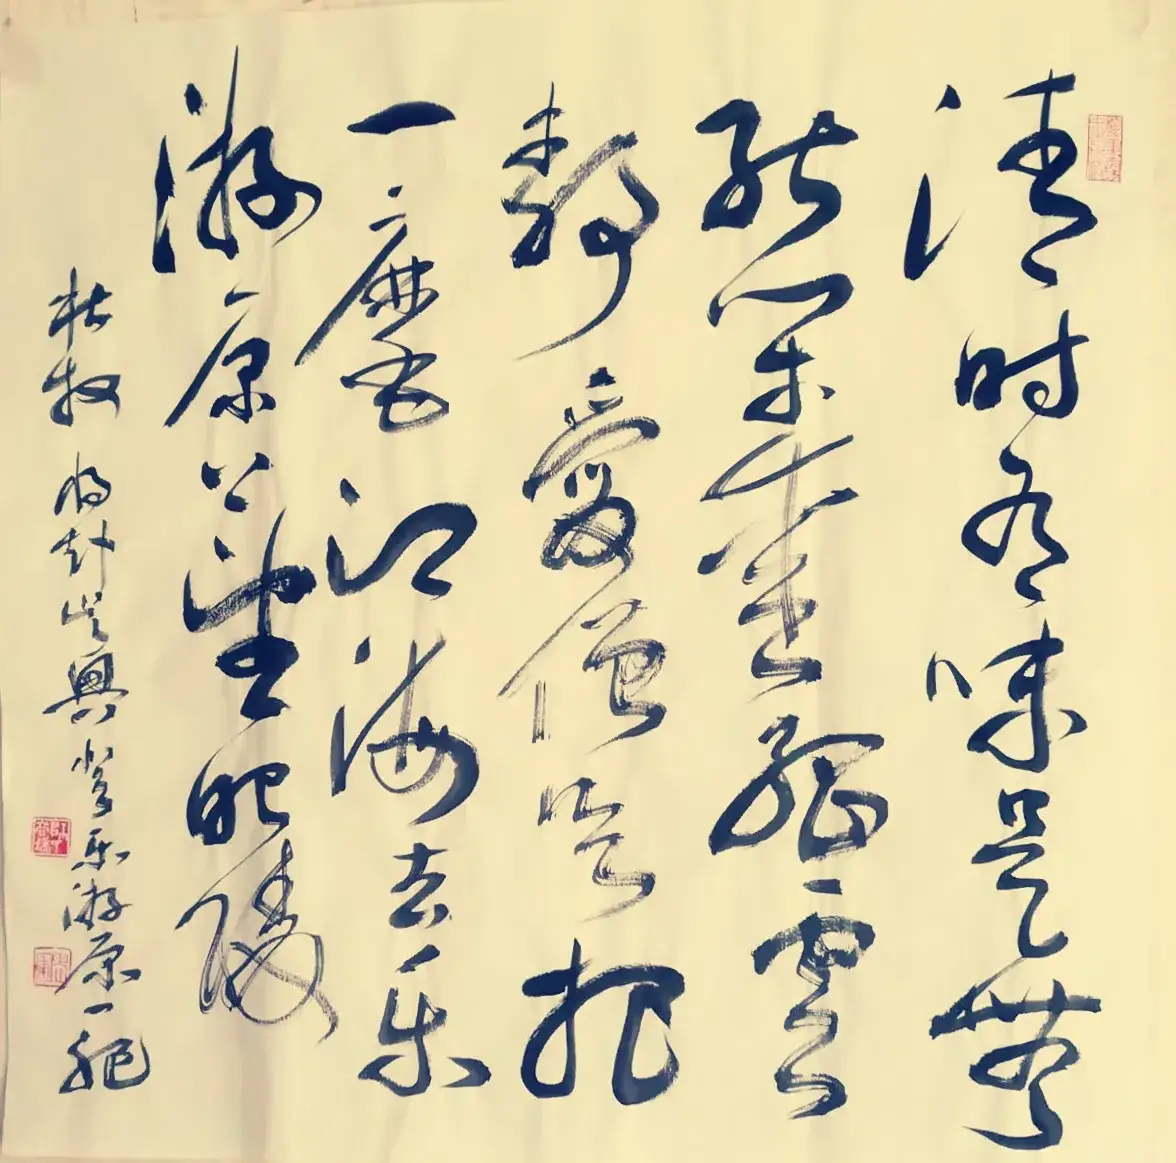 清时有味是無
能闲爱孤雲
静愛僧欲把
一麾江海去乐
游原上望昭陵
杜牧 将赴吴興登乐游原一绝